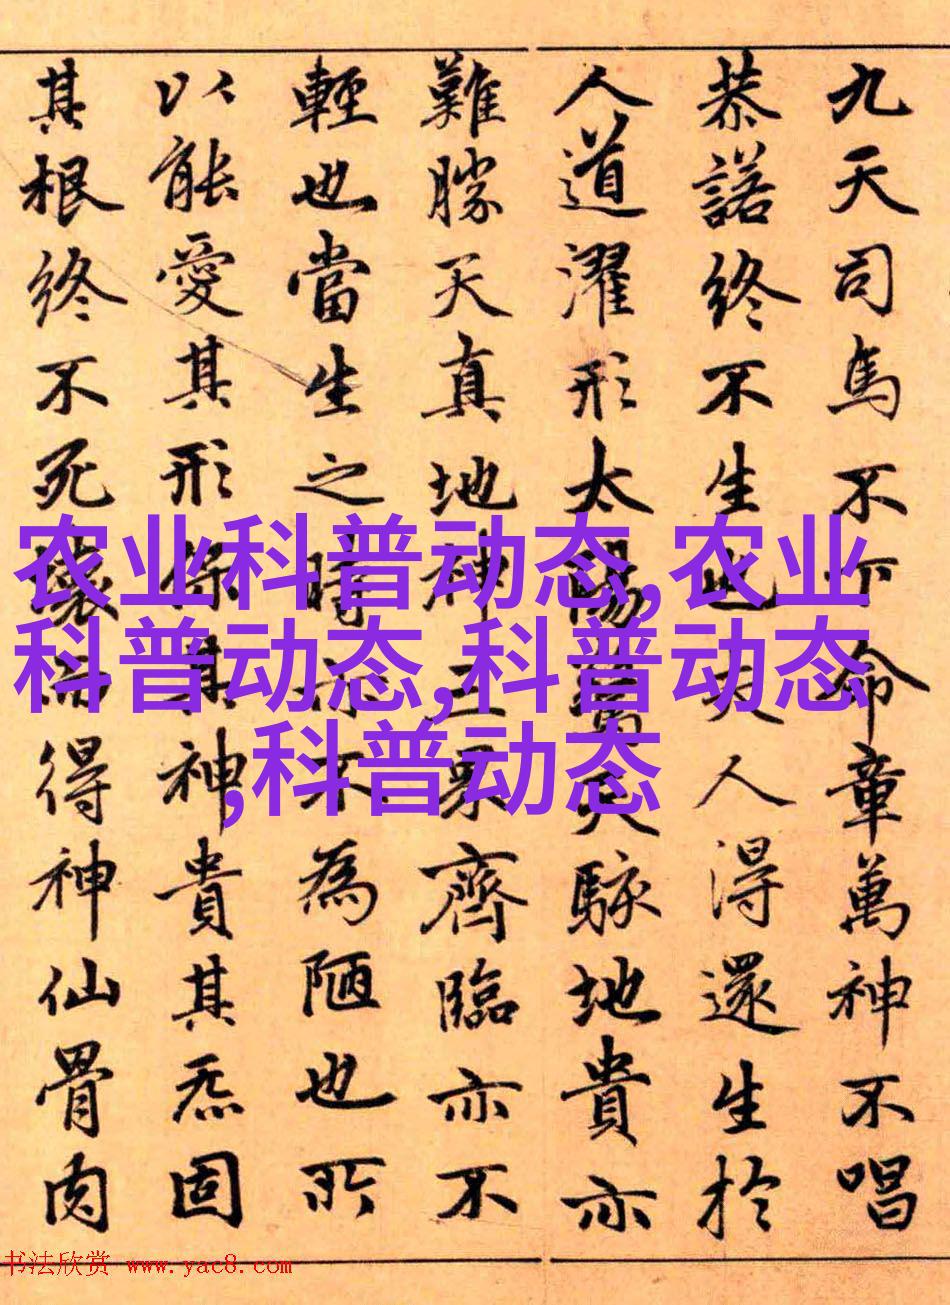 九天司馬不下命章萬神不唱
恭諾終不生也夫人得還生於
人道濯形太陽驚天駭地貴亦
難勝天真地神三界齊臨亦不
輕也當生之時亦不為陋也所
以能愛其形保其神貴其炁固
其根終不死壞而得神仙骨肉
农业科普动态,农业
科普动态,科普动态
,科普动态
书法欣赏 www.yac8.com